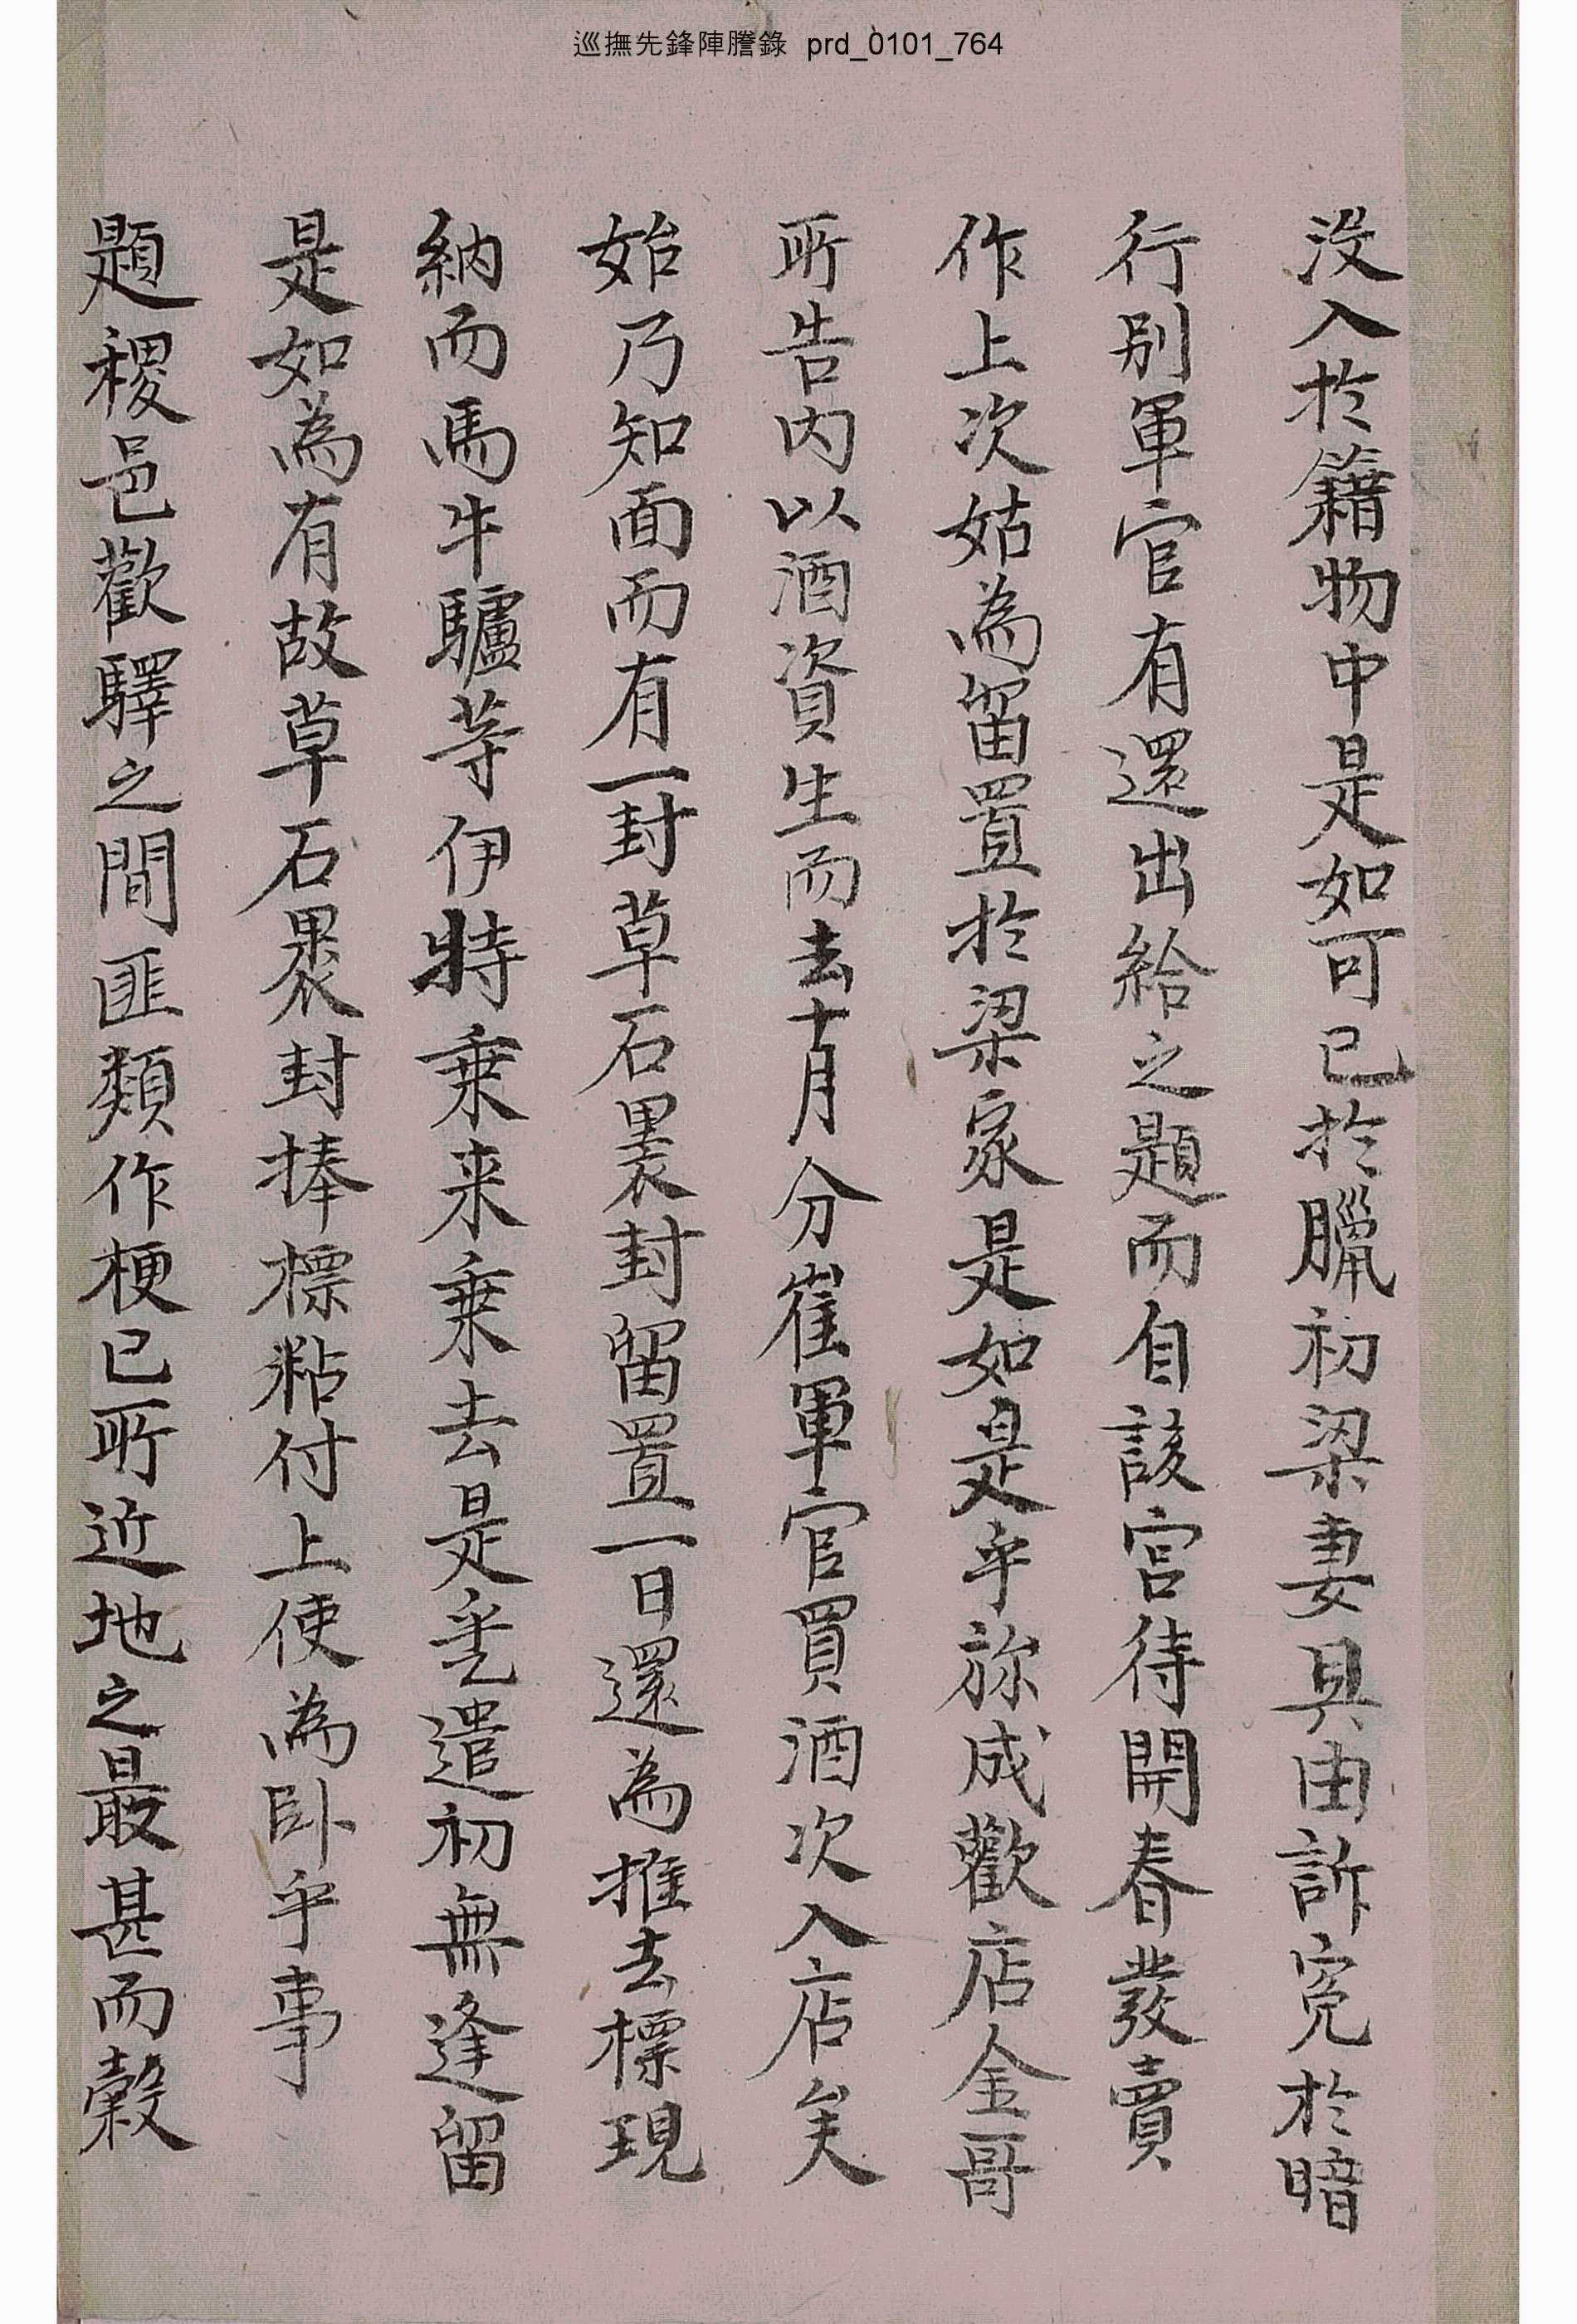 巡撫先鋒陣謄錄 prd_0101_764
没入於籍物中是如可已於臘初梁妻具由訴寃於暗
行別軍官有還出給之題而自該宮待開春發賣
作上次姑為留置於梁家是如是乎旀成歡店金哥
所告內以酒資生而去十月分崔軍官買酒次入店矣
始乃知面而有一封草石褁封留置一日還為推去標現
納而馬牛驢等伊特乘来乘去是乎遣初無逢留
是如為有故草石褁封捧標粘付上使為卧乎事
題稷邑歡驛之間匪類作梗已所近地之最甚而穀